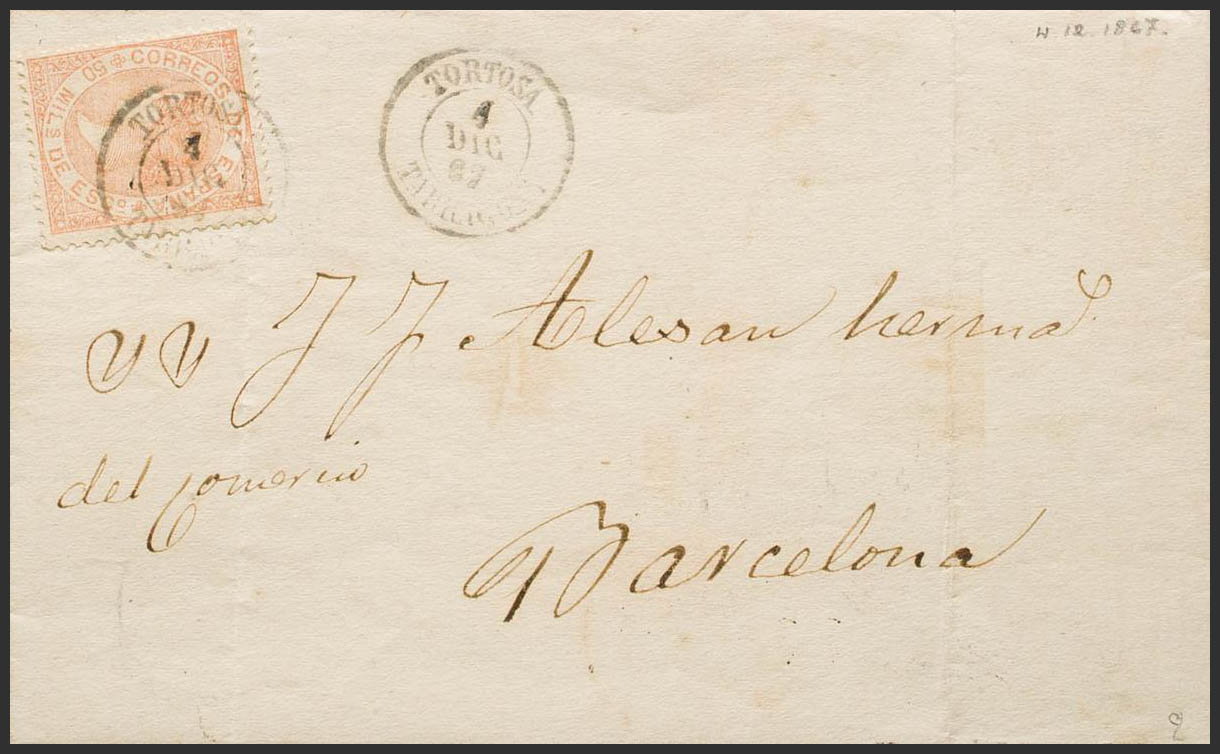 4.12.1867.
CORREOS DE ESPAÑA
50 MILs DE ESDO
TORTOSA
4
DIC
TORTOSA
4
DIC
67
TARRAGONA
J J Alesan hermas
del Comercio
Barcelona